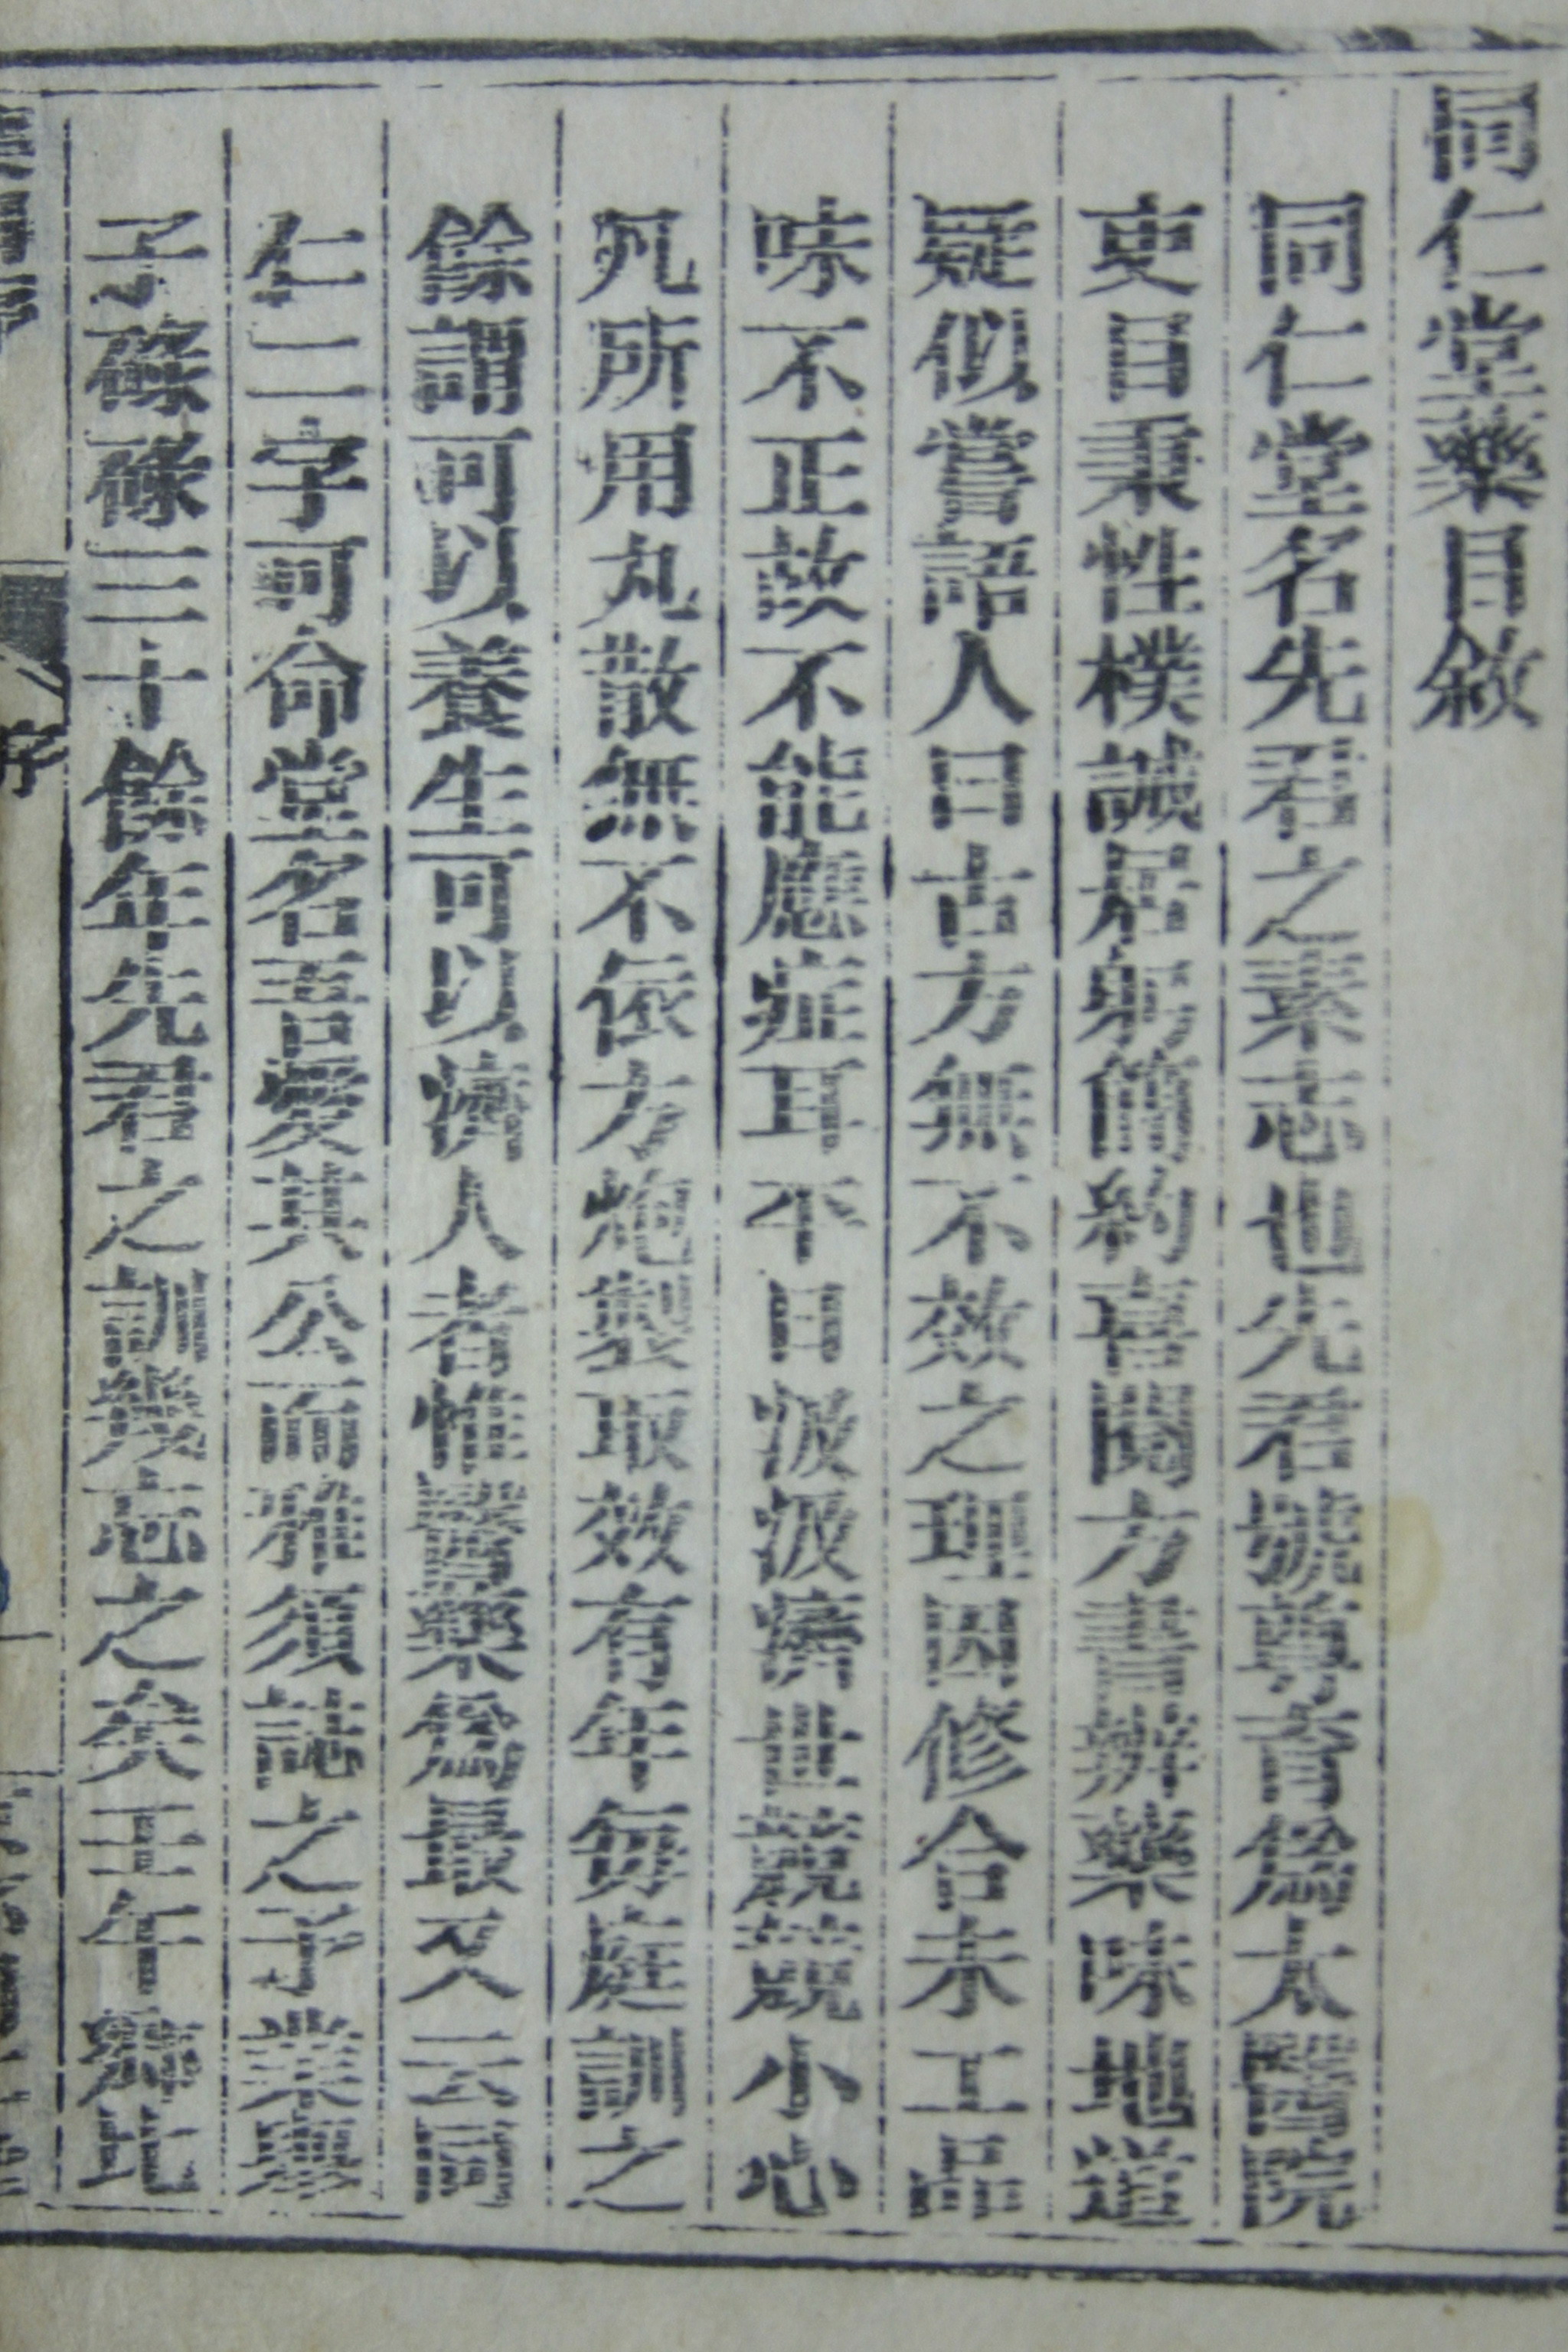 同仁堂藥目敘
同仁堂名先君之素志也先君號尊育爲太醫院
吏目秉性樸誠居躬簡約喜閱方書辨藥味地道
疑似嘗語人曰古方無不效之理因修合未工品
味不正故不能應症耳平日汲汲濟世兢兢小心
凡所用丸散無不依方炮製取效有年每庭訓之
餘謂可以養生可以濟人者惟醫藥爲最又云同
仁二字可命堂名吾愛其公而雅須誌之予業儒
子碌碌三十餘年先君之訓幾忘之矣壬午
序